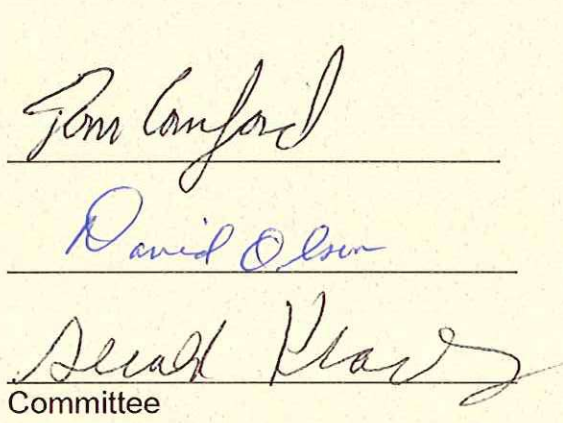 Tom Canford
David Olson
Committee